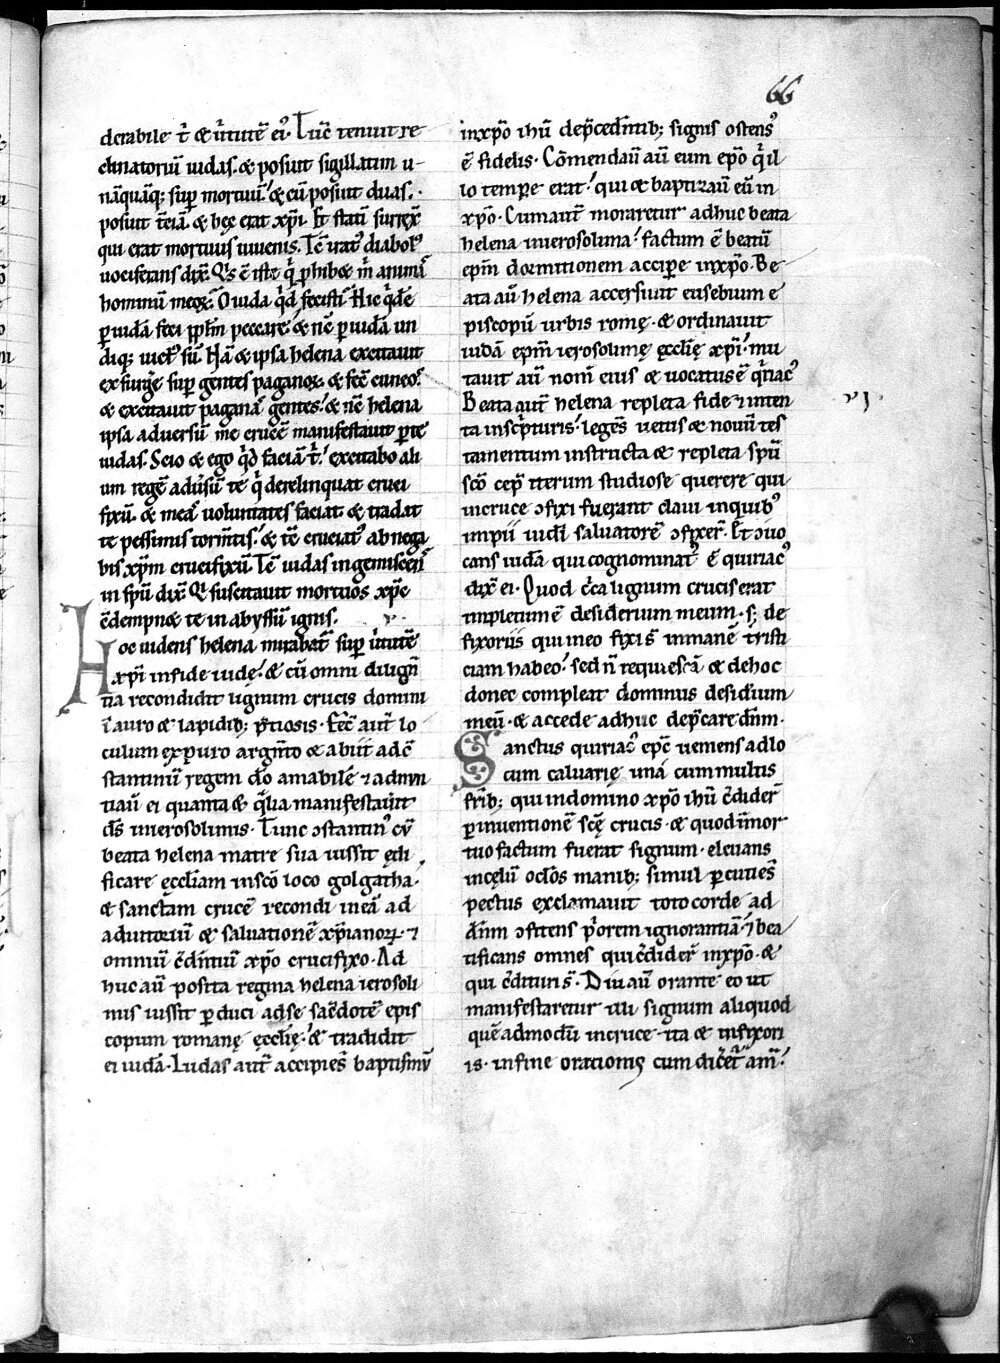 66
derabile t̄ & ūtutē eiꝰ. Tūc tenuit re
clinatoriū iudas. & posuit sigillatim u-
nāquāq; suꝑ mortuū. & cū posuit duas.
posuit tēiā. & hęc erat xp̄i. Et statī surrex̄
qui erat mortuus iuuenis. Tē diabolꝰ
uociferans dix̄. Qͥs ē iste qͥ ꝓhibet m̄ animā
hominū meoꝝ. O iuda qͥd fecisti. Hic qͥdē
ꝑ iudā feci ppl̄m peccare. & nē ꝑ iudā un
diq; sū. Hā & ipsa helena excitauit
exsurge suꝑ gentes paganoꝝ. & fec̄
& excitauit paganā gentes. & nē helena
ipsa aduersū me crucē manifestauit ꝑ te
iudas. Scio & ego qͥd faciā t̄. excitabo ali
um regē adūsū te qͥ derelinquat cruci
fixū. & meā uoluntates faciat & tradat
te pessimis torm̄tis. & tē cruciatꝰ ab nega
bis xp̄m crucifixū. Tē iudas ingemiscen̄
in spū dix̄. Qͥ suscitauit mortuos xp̄e
cōdempnet te in abyssū ignis.
Hoc uidens helena mirabat̄ suꝑ ūtutē
xp̄i in fide iudę. & cū omni diligen̄
tia recondidit lignum crucis domini
ī auro & lapidib; p̄tiosis. Fec̄ aut̄ lo
culum ex puro argn̄to & abiit ad cō
stantinū regem dō amabilē ⁊ adnun
tiauit ei quanta & qͣlia manifestauit
ds̄ in ierosolimis. Tunc ↄstantinꝰ cū
beata helena matre sua iussit ędi
ficare ęccl̄iam in scō loco golgatha.
& sanctam crucē recondi in eā ad
adiutoriū & saluationē xp̄ianoꝝ. ⁊
omniū c̄dn̄tiū xp̄o crucifixo. Ad
huc aū posita regina helena ierosoli
mis iussit ꝑduci ad se sac̄dotē epis
copum romanę ęccl̄ię. & tradidit
ei iudā. Iudas aut̄ accipiēs baptismū
in xp̄o ihū dep̄cedn̄tib; signis ostensꝰ
ē fidelis. Cōmendauit aū eum ep̄o qͥ il
lo tempe erat. qui & baptizauit eū in
xp̄o. Cum aut̄ moraretur adhuc beata
helena in ierosolima. factum ē beatū
ep̄m dormitionem accipe in xp̄o. Be
ata aū helena accersiuit eusebium e
piscopū urbis romę. & ordinauit
iudā ep̄m ierosolimę ęccl̄ię xp̄i. mu
tauit aū nom̄ eius & uocatus ē qͥriacꝰ
Beata aut̄ helena repleta fide ⁊ inten
ta in scp̄turis. legēs uetus & nouū tes
tamentum instructa & repleta spū
scō cep̄ iterum studiose querere qui
in cruce ↄfixi fuerant claui in quibꝰ
impii iudi saluatorē ↄfixer̄. Et ↄuo
cans iudā qui cognominatꝰ ē quiriacꝰ
dix̄ ei. Quod c̄ca lignum crucis erat
impletum ē desiderium meum. s; de
fixoriis qui in eo fixi s̄ inmanē tristi
ciam habeo. sed n̄ requiescā & de hoc
donec compleat dominus desidīum
meū. & accede adhuc dep̄care dn̄m.
Sanctus quiriacꝰ ep̄c ueniens ad lo
cum caluarię unā cum multis
fr̄ib; qui in domino xp̄o ihū c̄dider̄
ꝑ inuentionē scę̄ crucis. & quod in mor
tuo factum fuerat signum. eleuans
in celū oclōs manib; simul ꝑcutiēs
pectus exclamauit toto corde ad
dn̄m ↄfitens p̄orem ignorantiā. ⁊ bea
tificans omnes qui c̄dider̄ in xp̄o. &
qui c̄dituri s̄. Diu aū orante eo ut
manifestaretur illi signum aliquod
quēadmodū in cruce. ita & in fixori
is. in fine orationis cum dic̄et am̄.
vj.